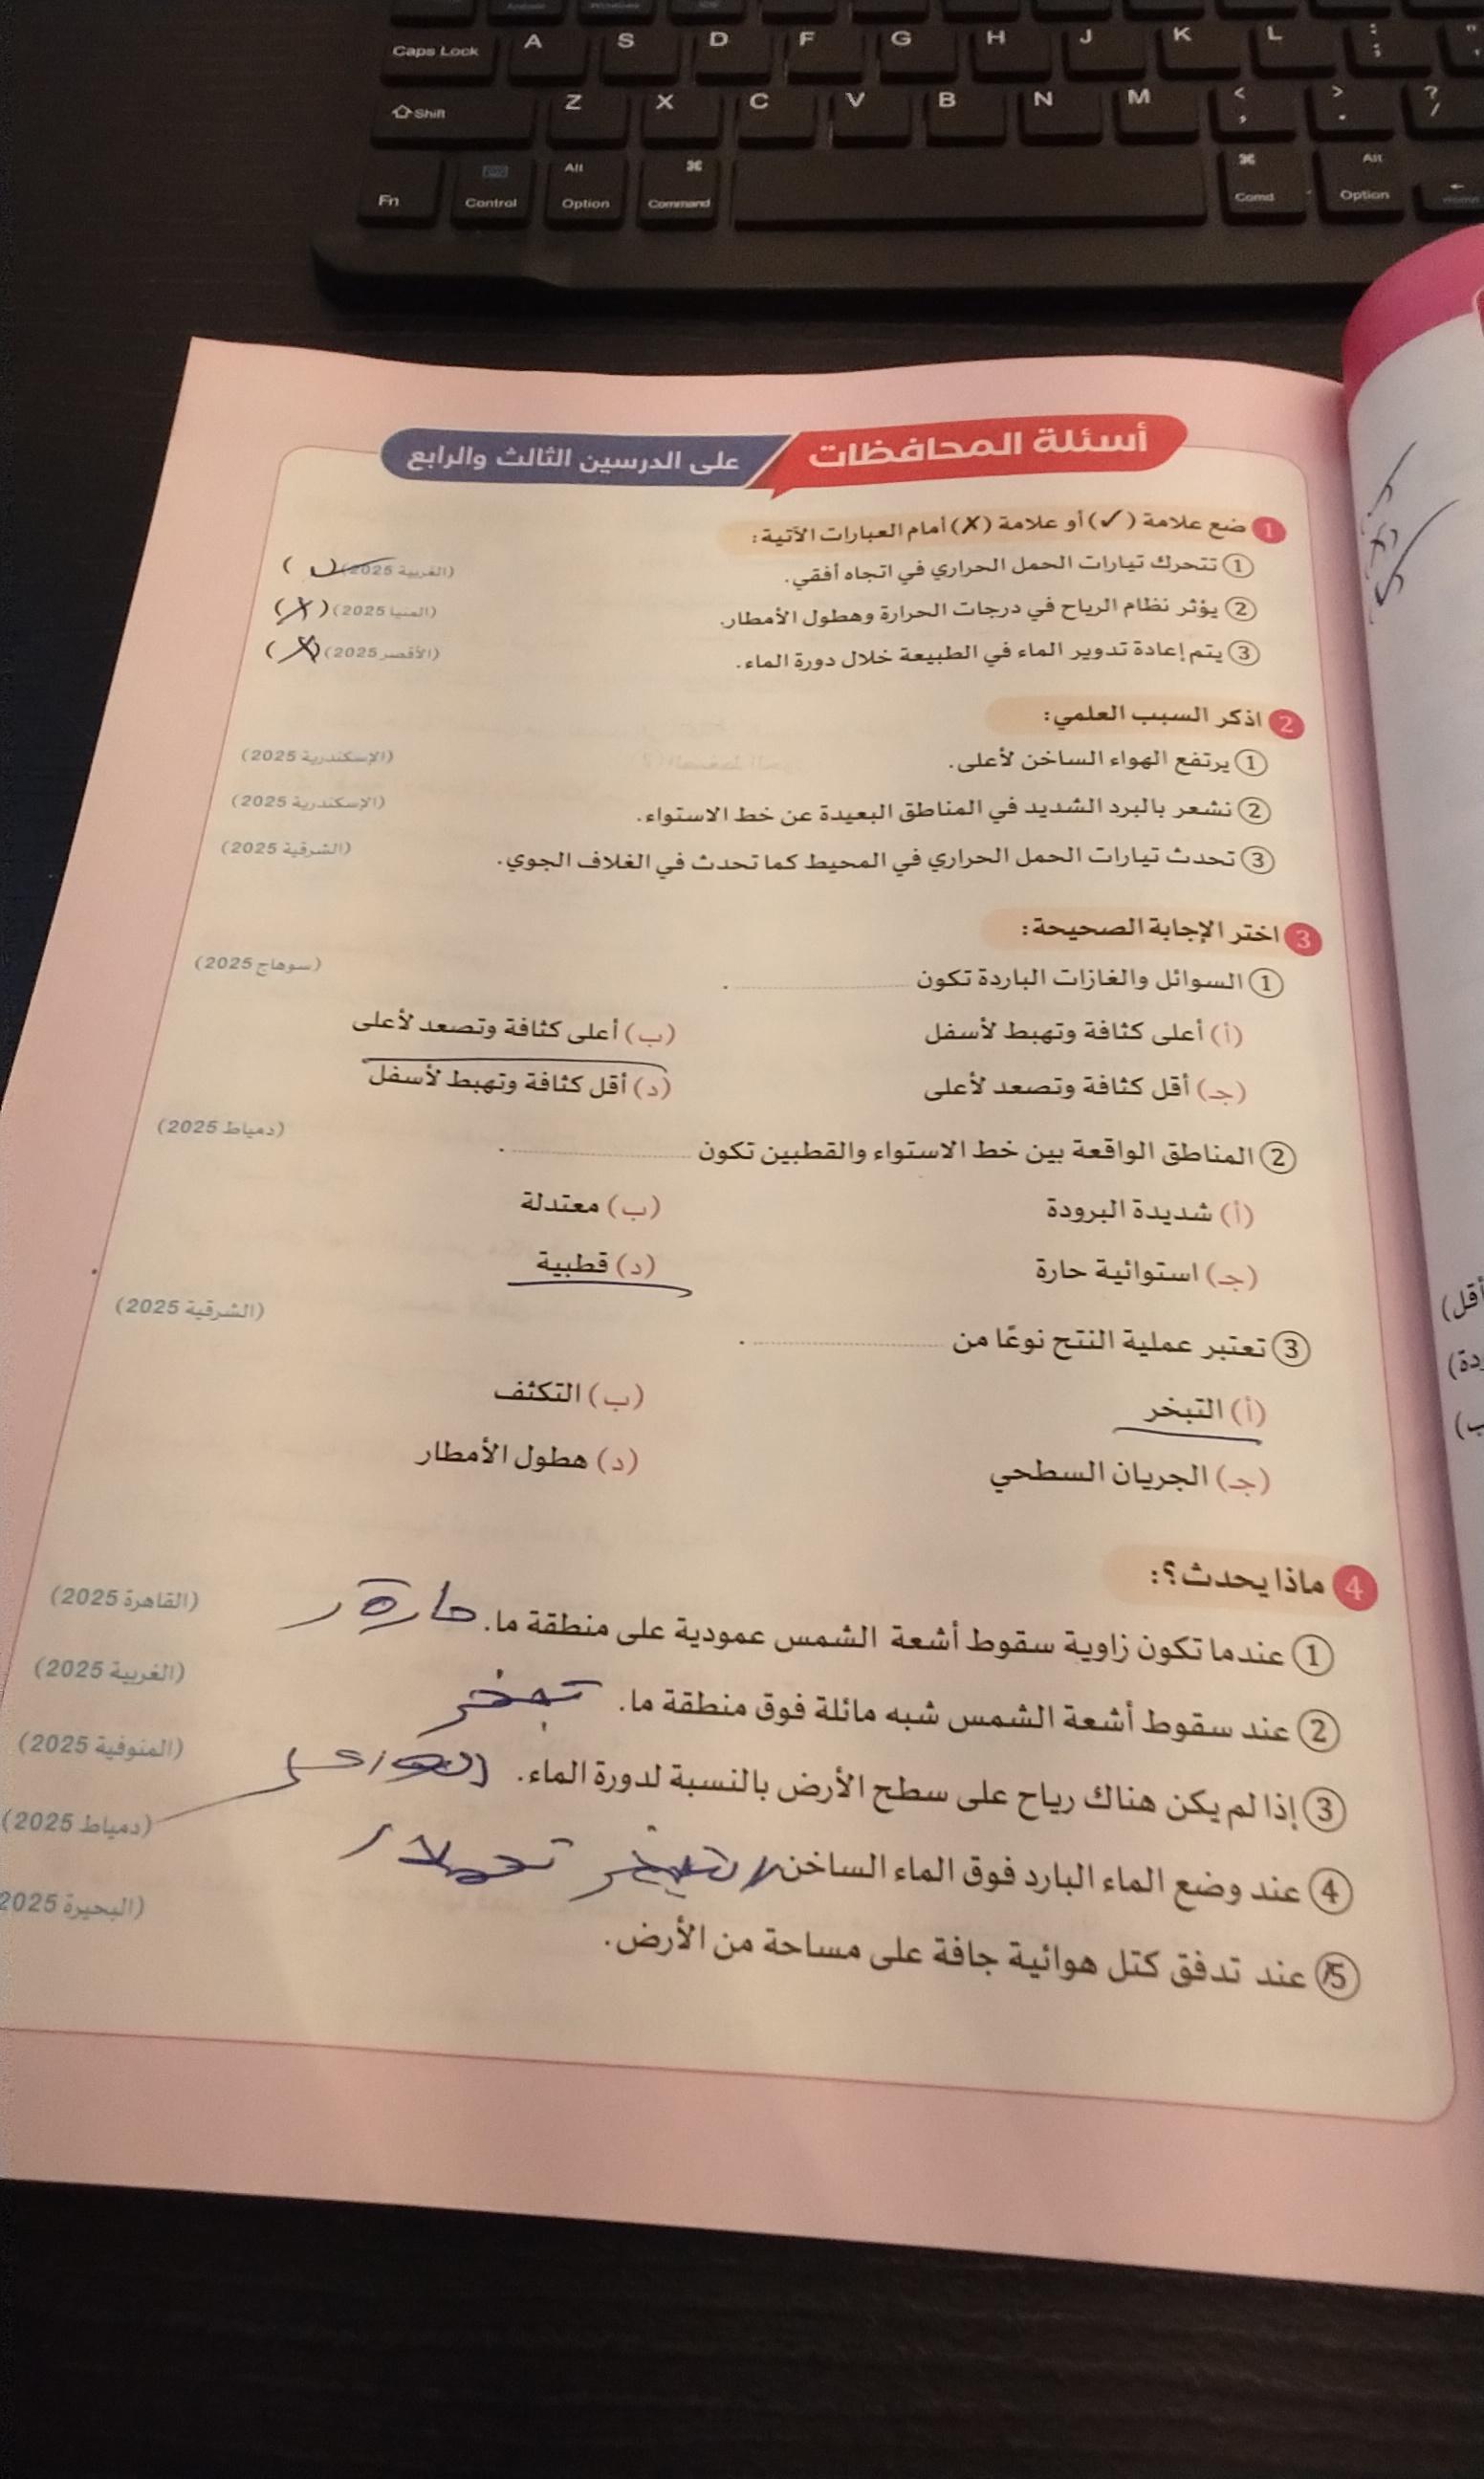 Caps Lock A S D F G H J K L : ;
Shift Z X C V B N M < , > . ? /
Fn Control Alt Option ⌘ Command ⌘ Comd Alt Option
أسئلة المحافظات على الدرسين الثالث والرابع
1 ضع علامة (✓) أو علامة (✗) أمام العبارات الآتية:
① تتحرك تيارات الحمل الحراري في اتجاه أفقي. (الغربية 2025) ( )
② يؤثر نظام الرياح في درجات الحرارة وهطول الأمطار. (المنيا 2025) (X)
③ يتم إعادة تدوير الماء في الطبيعة خلال دورة الماء. (الأقصر 2025) (X)
2 اذكر السبب العلمي:
① يرتفع الهواء الساخن لأعلى. (الإسكندرية 2025)
② نشعر بالبرد الشديد في المناطق البعيدة عن خط الاستواء. (الإسكندرية 2025)
③ تحدث تيارات الحمل الحراري في المحيط كما تحدث في الغلاف الجوي. (الشرقية 2025)
3 اختر الإجابة الصحيحة:
① السوائل والغازات الباردة تكون ........ . (سوهاج 2025)
(أ) أعلى كثافة وتهبط لأسفل (ب) أعلى كثافة وتصعد لأعلى
(جـ) أقل كثافة وتصعد لأعلى (د) أقل كثافة وتهبط لأسفل
② المناطق الواقعة بين خط الاستواء والقطبين تكون ........ . (دمياط 2025)
(أ) شديدة البرودة (ب) معتدلة
(جـ) استوائية حارة (د) قطبية
③ تعتبر عملية النتح نوعًا من ........ . (الشرقية 2025)
(أ) التبخر (ب) التكثف
(جـ) الجريان السطحي (د) هطول الأمطار
4 ماذا يحدث؟:
① عندما تكون زاوية سقوط أشعة الشمس عمودية على منطقة ما. حارة (القاهرة 2025)
② عند سقوط أشعة الشمس شبه مائلة فوق منطقة ما. تبخر (الغربية 2025)
③ إذا لم يكن هناك رياح على سطح الأرض بالنسبة لدورة الماء. (المنوفية 2025)
④ عند وضع الماء البارد فوق الماء الساخن (دمياط 2025)
⑤ عند تدفق كتل هوائية جافة على مساحة من الأرض. (البحيرة 2025
أقل)
دة)
ب)